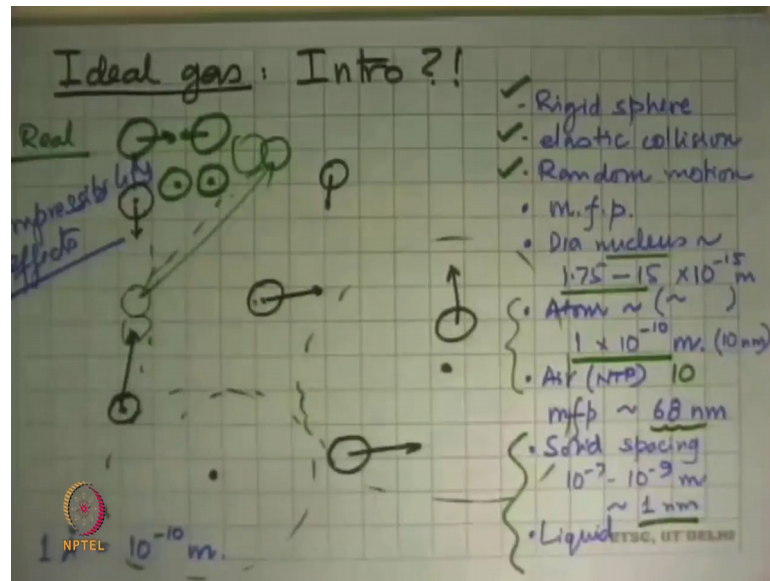 Ideal gas: Intro ?!
Real
mpressibility
effects
- Rigid sphere
- elastic collision
- Random motion
• m.f.p.
• Dia nucleus ~
1.75 - 15 × 10⁻¹⁵ m
• Atom ~ (~ )
1 × 10⁻¹⁰ m. (10 nm)
• Air (NTP) 10
mfp ~ 68 nm
• Solid spacing
10⁻⁷ - 10⁻⁹ m
~ 1 nm
• Liquid
ETSC, IIT DELHI
10⁻¹⁰ m.
NPTEL